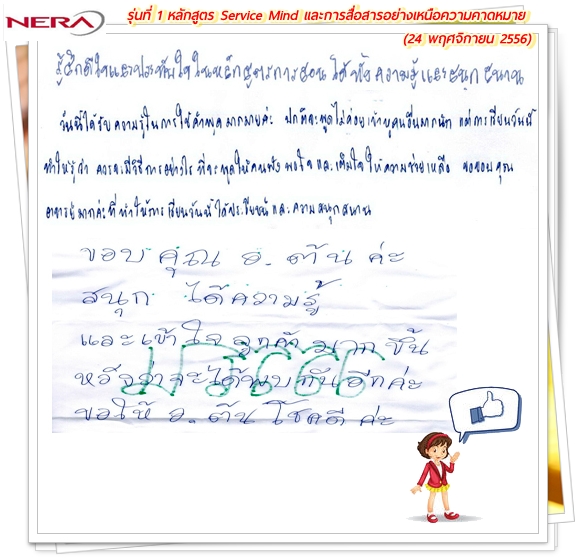 NERA
รุ่นที่ 1 หลักสูตร Service Mind และการสื่อสารอย่างเหนือความคาดหมาย
(24 พฤศจิกายน 2556)
รู้สึกดีใจและประทับใจในหลักสูตรการสอน ได้ทั้งความรู้และสนุกสนาน
วันนี้ได้รับความรู้ในการใช้คำพูดมากมายค่ะ ปกติจะพูดไม่ค่อยเข้าหูคนอื่นมากนัก แต่การเรียนวันนี้
ทำให้รู้ว่า ควรจะมีวิธีการอย่างไร ที่จะพูดให้คนฟังพอใจ และเต็มใจให้ความช่วยเหลือ ขอขอบคุณ
อาจารย์มากค่ะที่ทำให้การเรียนวันนี้ได้ประโยชน์และความสนุกสนาน
ขอบคุณ อ. ต้น ค่ะ
สนุก ได้ความรู้
และเข้าใจลูกค้ามากขึ้น
หวังว่าจะได้พบกันอีกค่ะ
ขอให้ อ. ต้น โชคดี ค่ะ